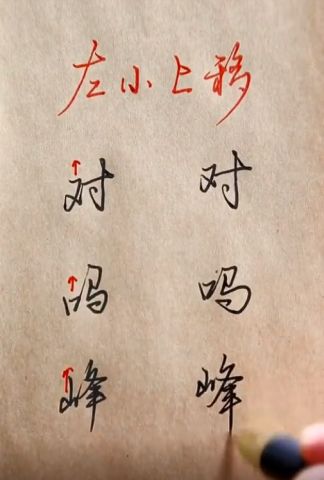 左小上移
对 对
吗 吗
峰 峰